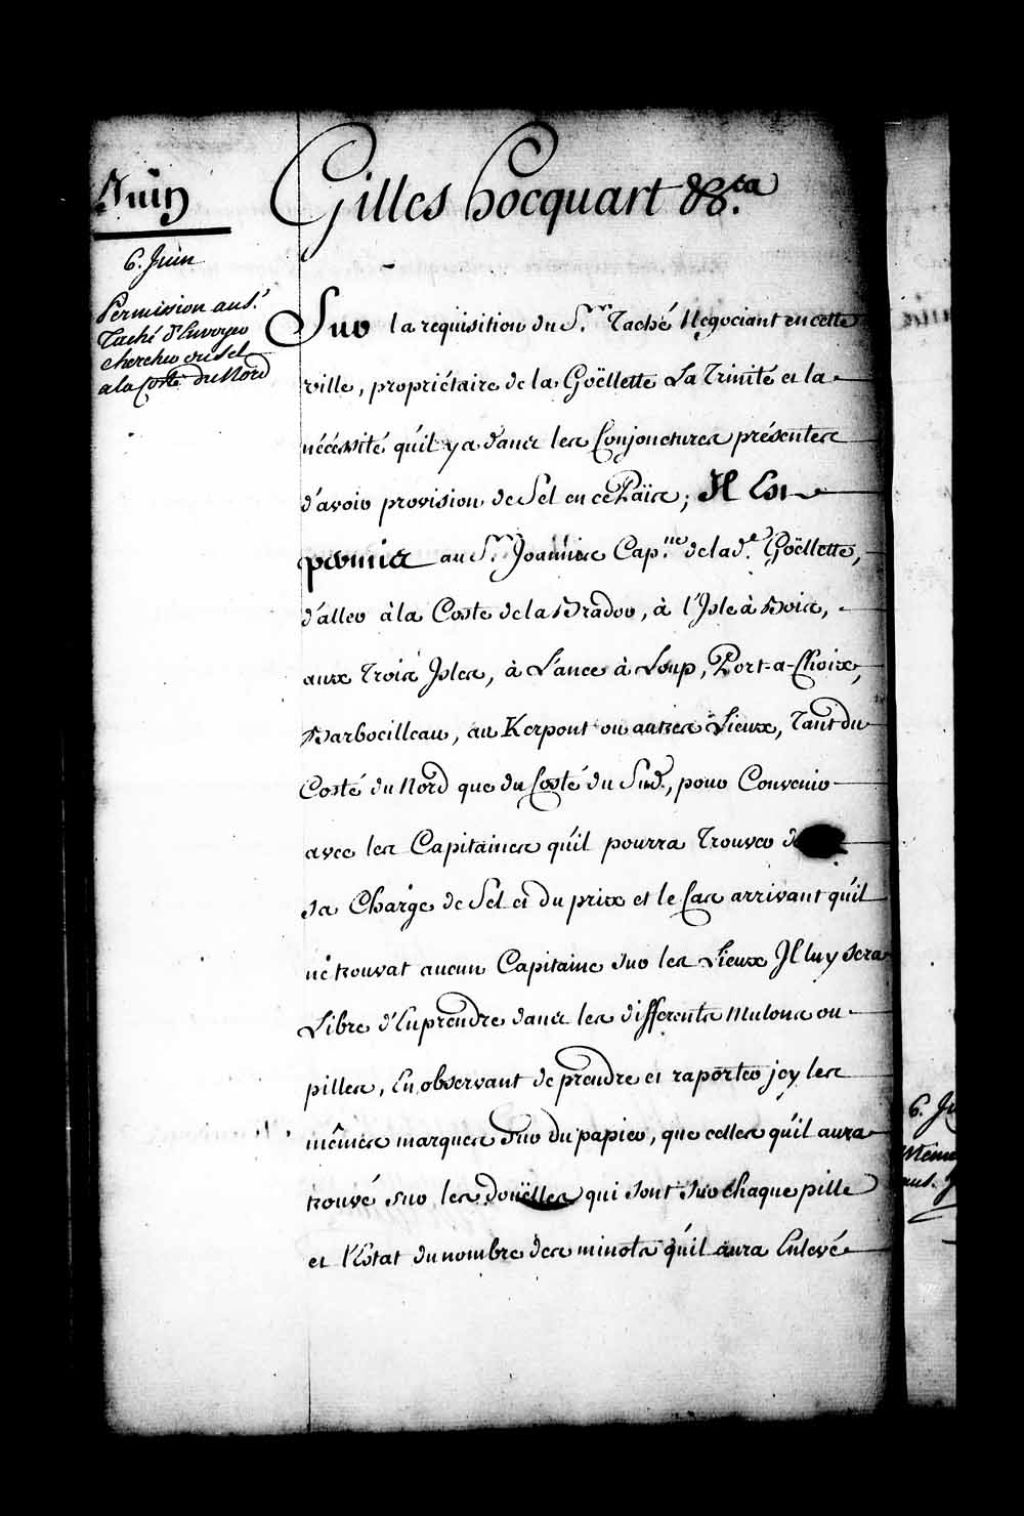 Juin
Gilles hocquart &c.ta
6. Juin
Permission au S.r
Taché d'Envoyer
chercher du Sel
a la Coste du Nord
Sur la requisition du S.r Taché Negociant en cette
ville, propriétaire de la Goëllette La Trinité et la
nécéssité qu'il y a dans les Conjonctures présentes
d'avoir provision de Sel en ce Païs; Il Est
permis au S.r Joannis Cap.ne de la d.e Goëllette,
d'aller à la Coste de la Brador, à l'Isle à Bois,
aux Trois Isles, à L'ance à Loup, Port-a-Choix,
Barbocilleau, au Kerpont ou autres Lieux, Tant du
Costé du Nord que du Costé du Sud, pour Convenir
avec les Capitaines qu'il pourra Trouver de
sa Charge de Sel et du prix et le Cas arrivant qu'il
ne trouvat aucun Capitaine sur les Lieux Il luy sera
Libre d'En prendre dans les differents Mulons ou
pilles, En observant de prendre et raporter icy les
mêmes marques Sur du papier, que celles qu'il aura
trouvé sur les doüelles qui sont sur chaque pille
et l'Estat du nombre des minots qu'il aura Enlevé
6. Ju
Même
au S.